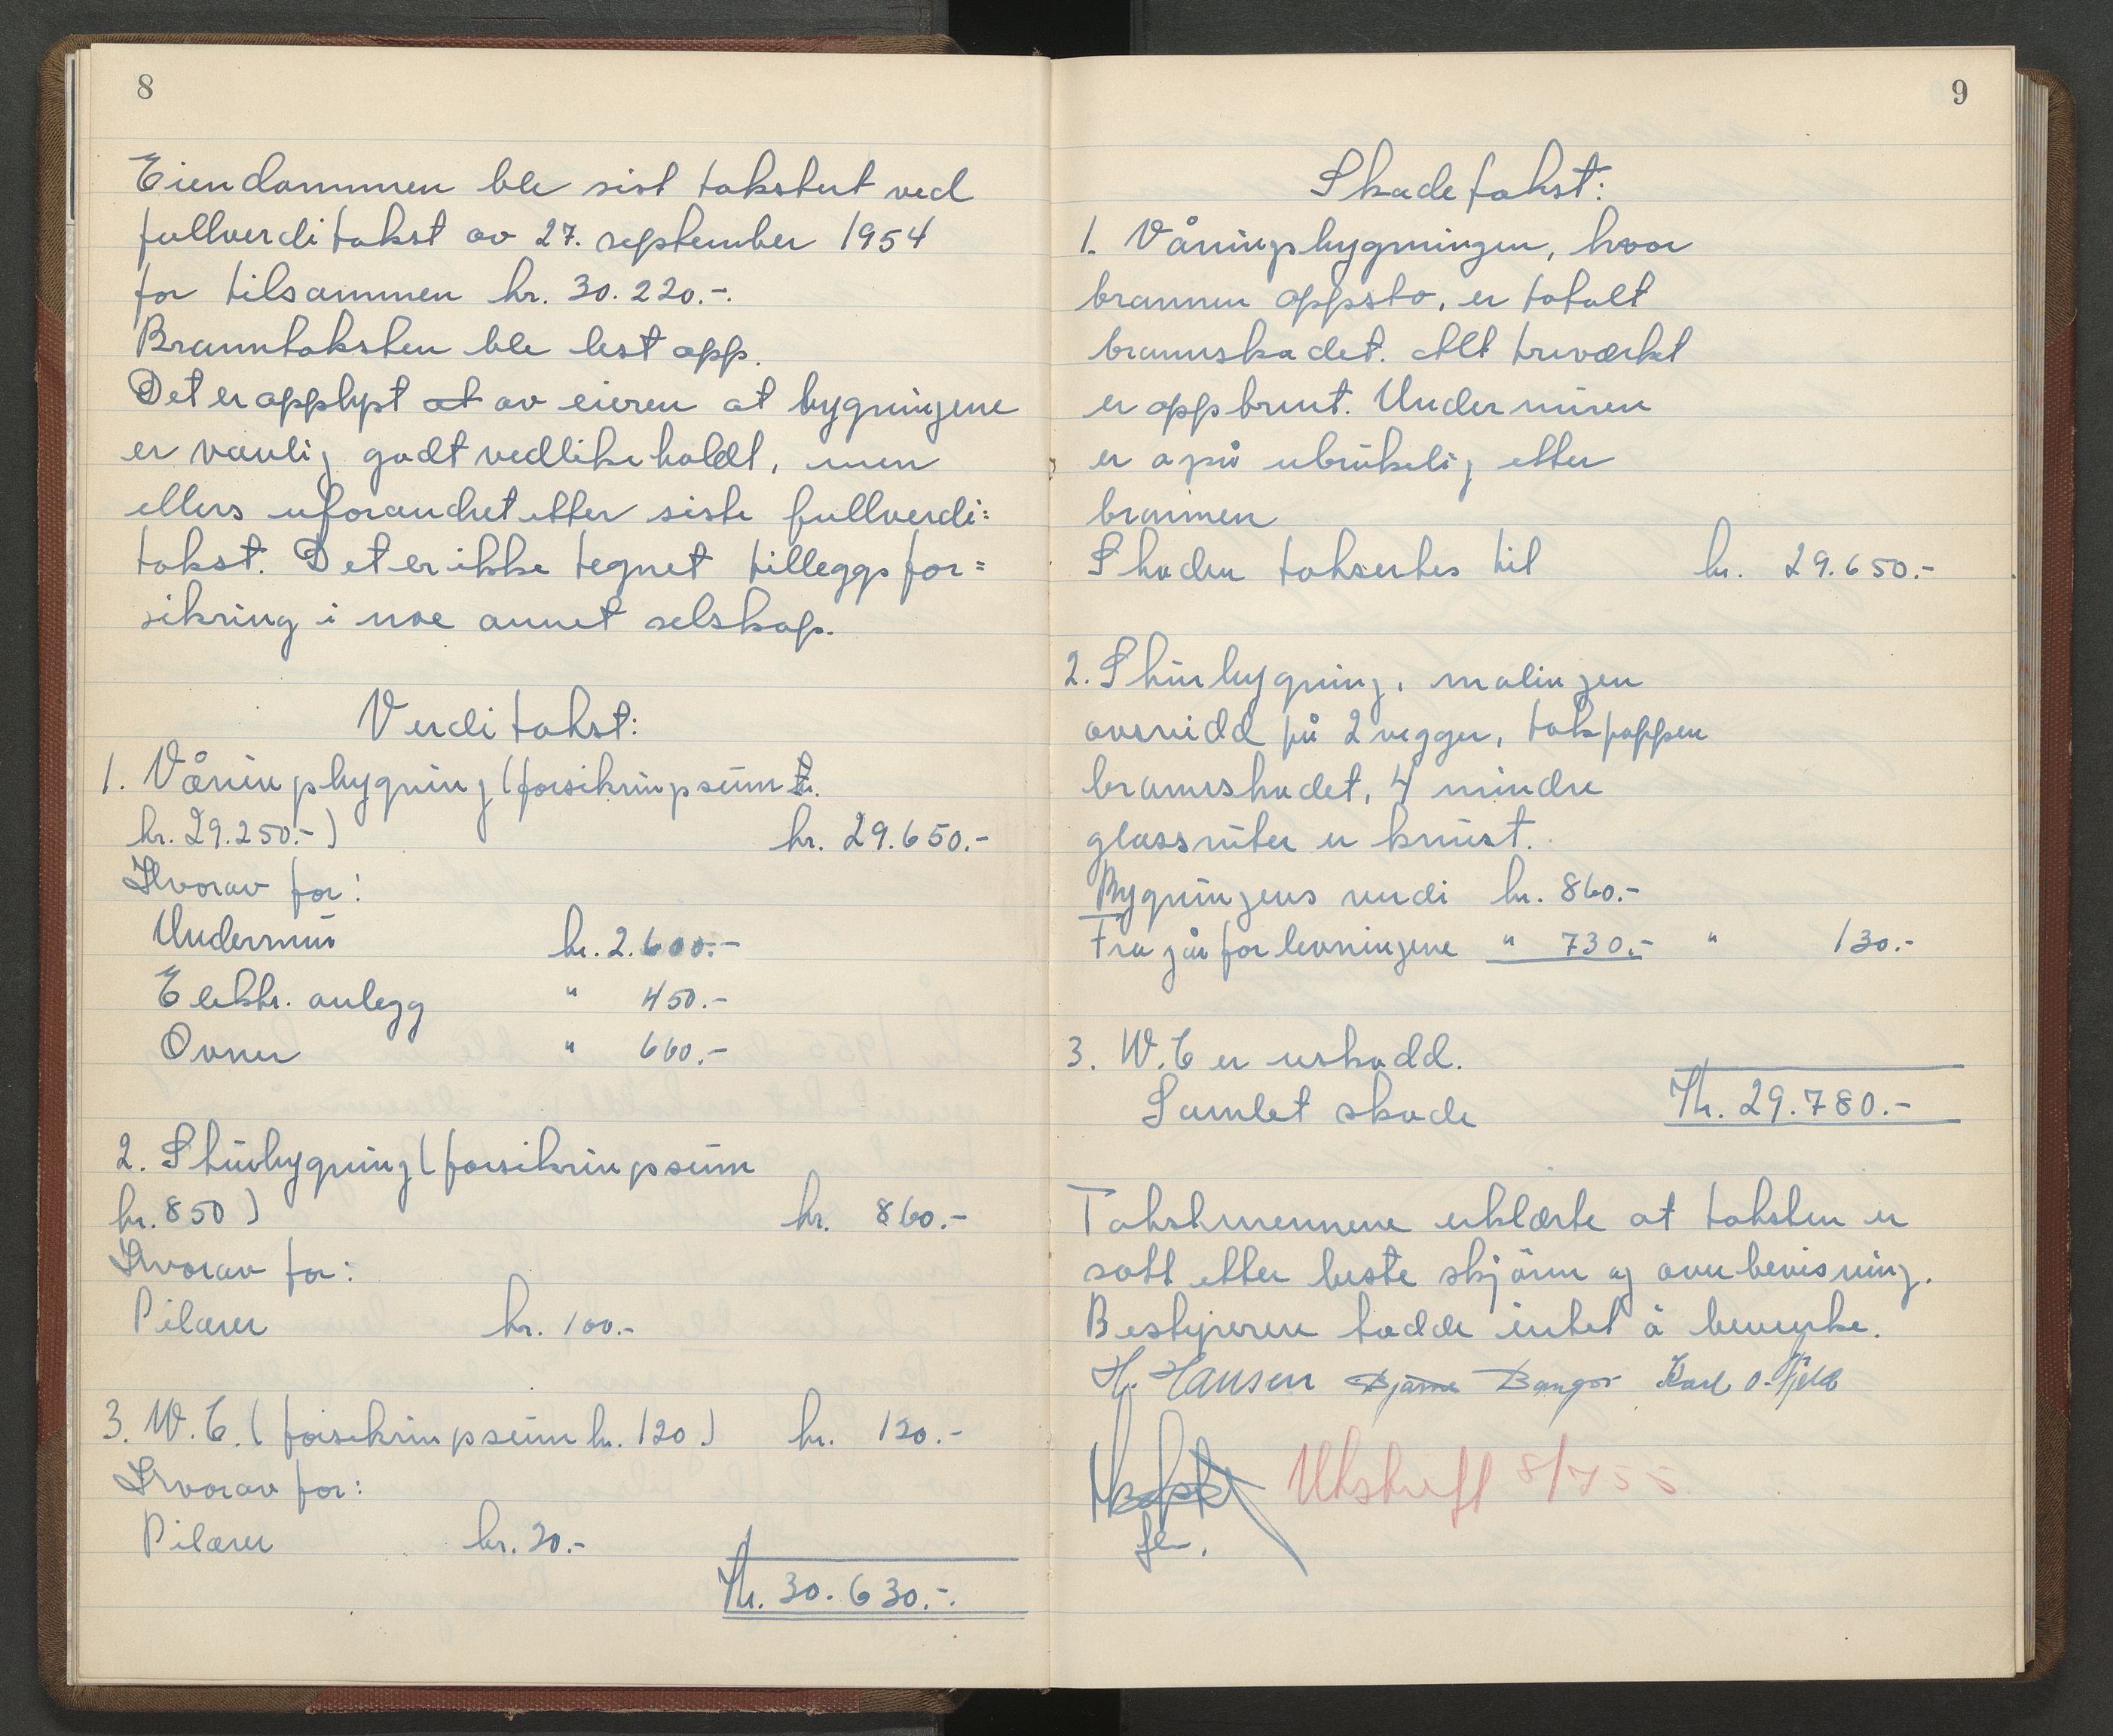 8
Eiendommen ble sist takstert ved
fullverditakst av 27. september 1954
for tilsammen kr. 30.220.-.
Branntaksten ble lest opp.
Det er opplyst at av eieren at bygningene
er vanlig godt vedlikeholdt, men
ellers uforandret etter siste fullverdi=
takst. Det er ikke tegnet tilleggsfor=
sikring i noe annet selskap.
Verditakst:
1. Våningsbygning (forsikringssum kr.
kr. 29.250.-) kr. 29.650.-
Hvorav for:
Undermur kr. 2.600.-
Elektr. anlegg " 450.-
Ovner " 660.-
2. Skurbygning (forsikringssum
kr. 850) kr. 860.-
Hvorav for:
Pilarer kr. 100.-
3. W.C. (forsikringssum kr. 120.) kr. 120.-
Hvorav for:
Pilarer kr. 20.-
Kr. 30.630.-.
9
Skadetakst:
1. Våningsbygningen, hvor
brannen oppsto, er totalt
brannskadet. Alt treværket
er oppbrent. Undermuren
er også ubrukelig etter
brannen
Skaden takseres til kr. 29.650.-
2. Skurbygning, malingen
avsvidd på 2 vegger, takpappen
brannskadet, 4 mindre
glassruter er knust.
Bygningens verdi kr. 860.-
Fra går for levningene " 730.- " 130.-
3. W.C er uskadd.
Samlet skade Kr. 29.780.-
Takstmennene erklærte at taksten er
satt etter beste skjønn og overbevisning.
Bestyreren hadde intet å bemerke.
H. Hansen Bjarne Bangor Karl O. Fjeld
flm.
Utskrift 8/7 55